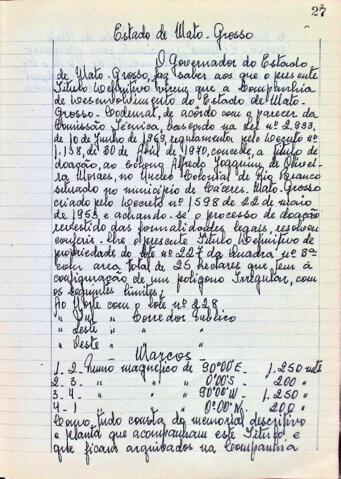 27
Estado de Mato-Grosso
O Governador do Estado
de Mato-Grosso, faz saber aos que o presente
Titulo Definitivo virem que a Companhia
de Desenvolvimento do Estado de Mato-
Grosso-Codemat, de acôrdo com o parecer da
Comissão Técnica, baseado na Lei nº 2.933,
de 10 de Junho de 1969, regulamento pelo Decreto nº
1.138, de 20 de Abril de 1970, concede, a titulo de
doação, ao colono Alfredo Joaquim de Olivei-
ra Moraes, no Núcleo Colonial de Rio Branco
situado no municipio de Cáceres. Mato-Grosso
criado pelo Decreto nº 1598 de 22 de maio
de 1953 e achando-se o processo de doação
revestido das formalidades legais, resolveu
conferir-lhe o presente Titulo Definitivo de
propriedade do lote nº 227 da Quadra nº 8ª
com area total de 25 hectares que tem á
configuração de um poligono Irregular, com
os seguintes limites:
Ao Norte com o lote nº 228
" Sul " Corredor Publico
" Leste " "
" Oeste " "
Marcos
1-2- Rumo magnético de 90º00'E - 1.250 mts
2-3- " " " 0º00'S - 200 "
3-4- " " " 90º00'W - 1.250 "
4-1 " " " 0º00'N - 200 "
Como tudo consta do memorial descritivo
e planta que acompanham este Titulo e
que ficam arquivados na Companhia